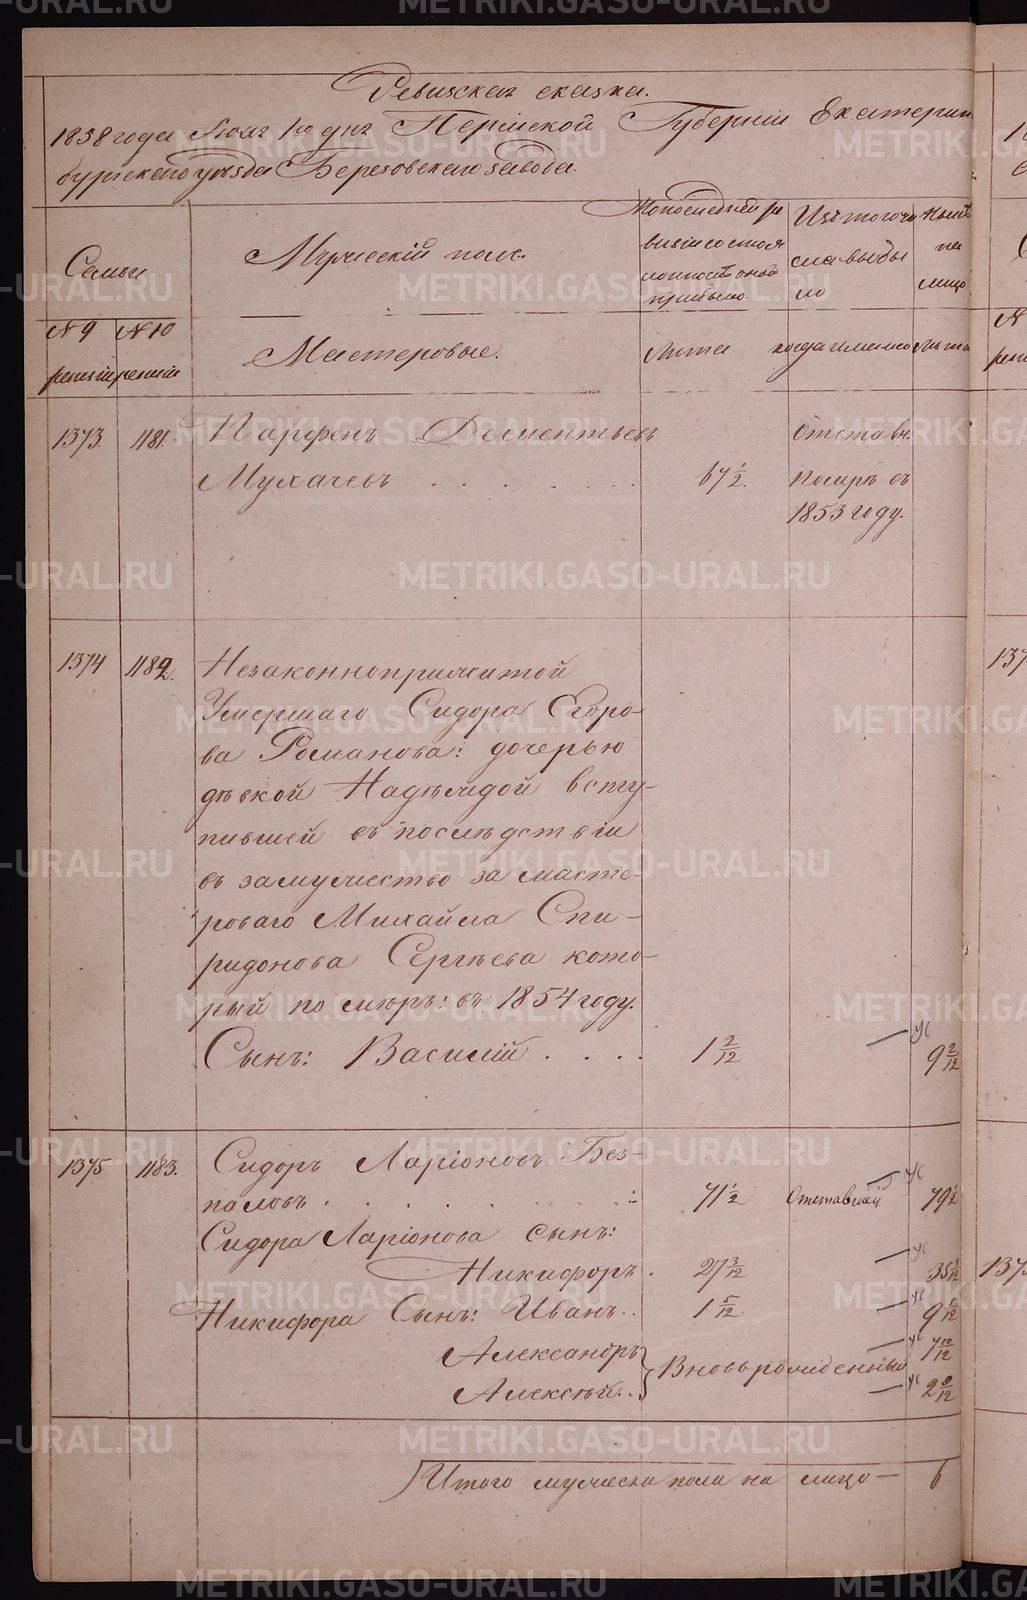 Ревизская сказка.
1858 года Июля 1го дня Пермской Губернии Екатерин
бургскаго уѣзда Березовскаго завода.
Семьи
Мужескій полъ.
По последней ре
визіи состоя
ло и послѣ оной
прибыло
Изъ того чи
сла выбы
ло
Нынѣ
на
лицо
№ 9
ревизіи
№ 10
ревизіи
Мастеровые.
Лѣта
когда именно
лѣта
1373.
1181.
Парфенъ Дементьевъ
Мухачевъ . . . . . .
67 1/2.
Отставн.
помре въ
1853 году.
1374
1182.
Незаконноприжитой
Умершаго Сидора Егоро-
ва Романова: дочерью
дѣвкой Надѣждой всту-
пившей въ последствіи
въ замужество за масте-
роваго Михайла Спи-
ридонова Сергѣева кото-
рый помюръ: въ 1854 году.
Сынъ: Василій . . . .
1 2/12
—
9 2/12
1375
1183.
Сидоръ Ларіоновъ Без-
паловъ . . . . . . .
71 1/2
Отставной
79 1/2
Сидора Ларіонова сынъ:
Никифоръ .
27 3/12
—
35 3/12
Никифора Сынъ: Иванъ . .
1 5/12
—
9 5/12
Александръ
Алексѣй . .
Вновьрожденные
—
7 10/12
—
2 8/12
Итого мужеска пола на лицо —
6
137
137
METRIKI.GASO-URAL.RU